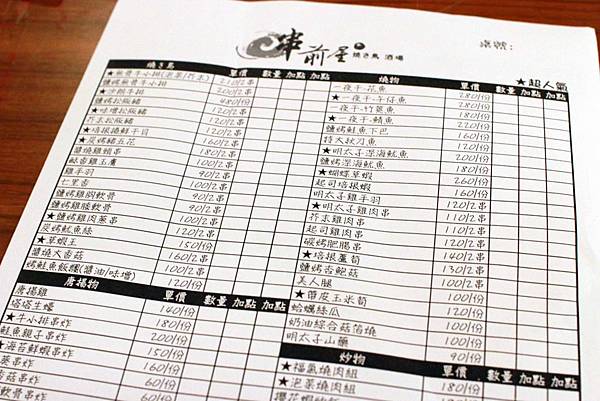 串前屋 燒き鳥 酒場
桌號:
★超人氣
燒き鳥 單價 數量 加點 加點
210/2串
鹽烤無骨牛小排 200/2串
480/份
★味增松阪豬 120/2串
芥末松阪豬 120/2串
★培根捲鮮干貝 180/2串
★炭烤豬五花 120/2串
醬燒雞蝴蝶 180/2串
椒香雞玉膚 100/2串
雞手羽 90/2串
七里香 100/2串
鹽烤雞胸軟骨 90/2串
鹽烤雞膝軟骨 90/2串
★鹽烤雞肉蔥串 100/2串
炭烤魷魚絲 120/2串
★草蝦王 150/份
醬燒大香菇 160/2串
烤鮭魚飯糰(醬油/味增) 120/份
唐揚物 單價 數量 加點 加點
唐揚雞 140/份
塔塔生蠔 180/份
★牛小排串炸 200/份
鮭魚親子串炸 150/份
★海苔鮮蝦串炸 160/份
蔥串炸 60/份
香菇串炸 60/份
軟骨串炸
燒物 單價 數量 加點 加點
一夜干-花魚 280/份
★一夜干-午仔魚 280/份
★一夜干-竹筴魚 180/份
★一夜干-鯖魚 220/份
鹽烤鮭魚下巴 160/份
特大秋刀魚 120/份
★明太子深海魷魚 200/份
鹽烤深海魷魚 180/份
★蝴蝶草蝦 260/份
起司培根蝦 160/份
★明太子雞手羽 120/2串
★明太子雞肉串 110/2串
芥末雞肉串 110/2串
起司雞肉串 110/2串
碳烤肥腸串 120/2串
★培根蘆筍 140/2串
鹽烤杏鮑菇 130/2串
美人腿 100/2串
★帶皮玉米筍 100/份
蛤蠣絲瓜 120/份
奶油綜合菇箔燒 100/份
明太子山藥 90/份
炒物 單價 數量 加點 加點
★福氣燒肉組 180/份
★泡菜燒肉組 180/份
櫻花蝦炒飯